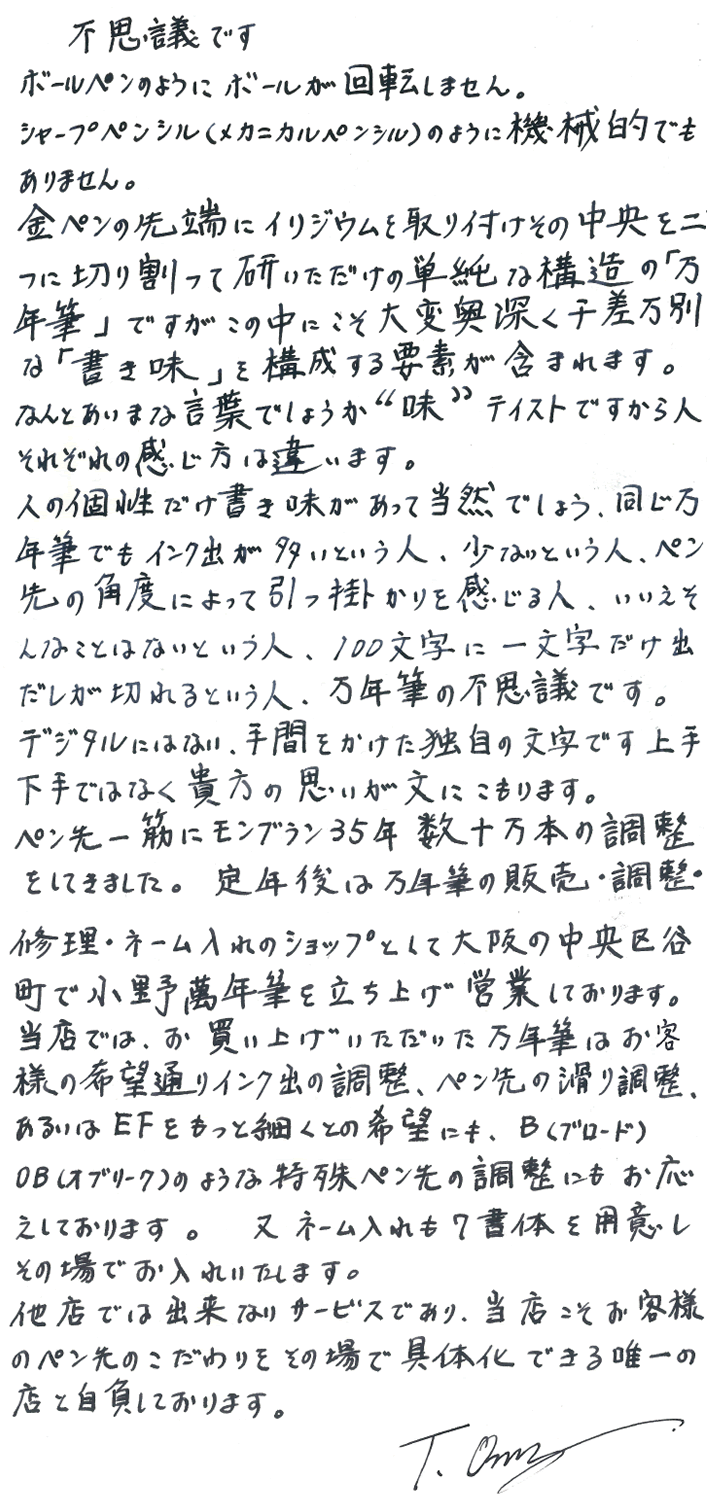 不思議です
ボールペンのようにボールが回転しません。
シャープペンシル(メカニカルペンシル)のように機械的でも
ありません。
金ペンの先端にイリジウムを取り付けその中央を二
つに切り割って研いただけの単純な構造の「万
年筆」ですがこの中にこそ大変奥深く千差万別
な「書き味」を構成する要素が含まれます。
なんとあいまいな言葉でしょうか“味”テイストですから人
それぞれの感じ方は違います。
人の個性だけ書き味があって当然でしょう、同じ万
年筆でもインク出が多いという人、少ないという人、ペン
先の角度によって引っ掛かりを感じる人、いいえそ
んなことはないという人、100文字に一文字だけ出
だしが切れるという人、万年筆の不思議です。
デジタルにはない、手間をかけた独自の文字です上手
下手ではなく貴方の思いが文にこもります。
ペン先一筋にモンブラン35年数十万本の調整
をしてきました。 定年後は万年筆の販売・調整・
修理・ネーム入れのショップとして大阪の中央区谷
町で小野萬年筆を立ち上げ営業しております。
当店では、お買い上げいただいた万年筆はお客
様の希望通りインク出の調整、ペン先の滑り調整、
あるいはEFをもっと細くとの希望にも、B(ブロード)
OB(オブリーク)のような特殊ペン先の調整にもお応
えしております。 又ネーム入れも7書体を用意し
その場でお入れいたします。
他店では出来ないサービスであり、当店こそお客様
のペン先のこだわりをその場で具体化できる唯一の
店と自負しております。
T. Ono